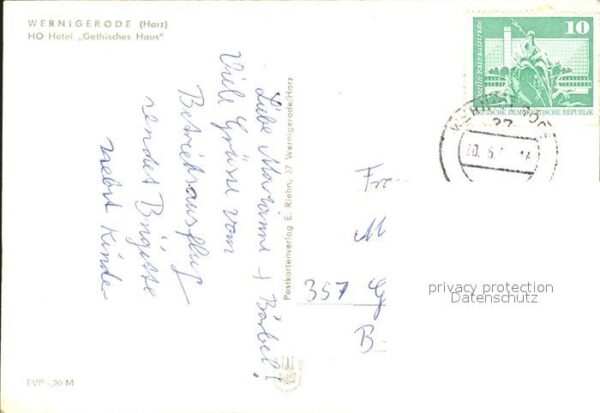 WERNIGERODE (Harz)
HO Hotel „Gothisches Haus"
Liebe Marianne + Bärbel!
Viele Grüsse vom
Betriebsausflug
sendet Brigitte
nebst Kinder
Postkartenverlag E. Riehn, 37 Wernigerode/Harz
10
Berlin-Rathausstraße
DEUTSCHE DEMOKRATISCHE REPUBLIK
37
Fr.
M
357 G
B.
privacy protection
Datenschutz
EVP -,20 M